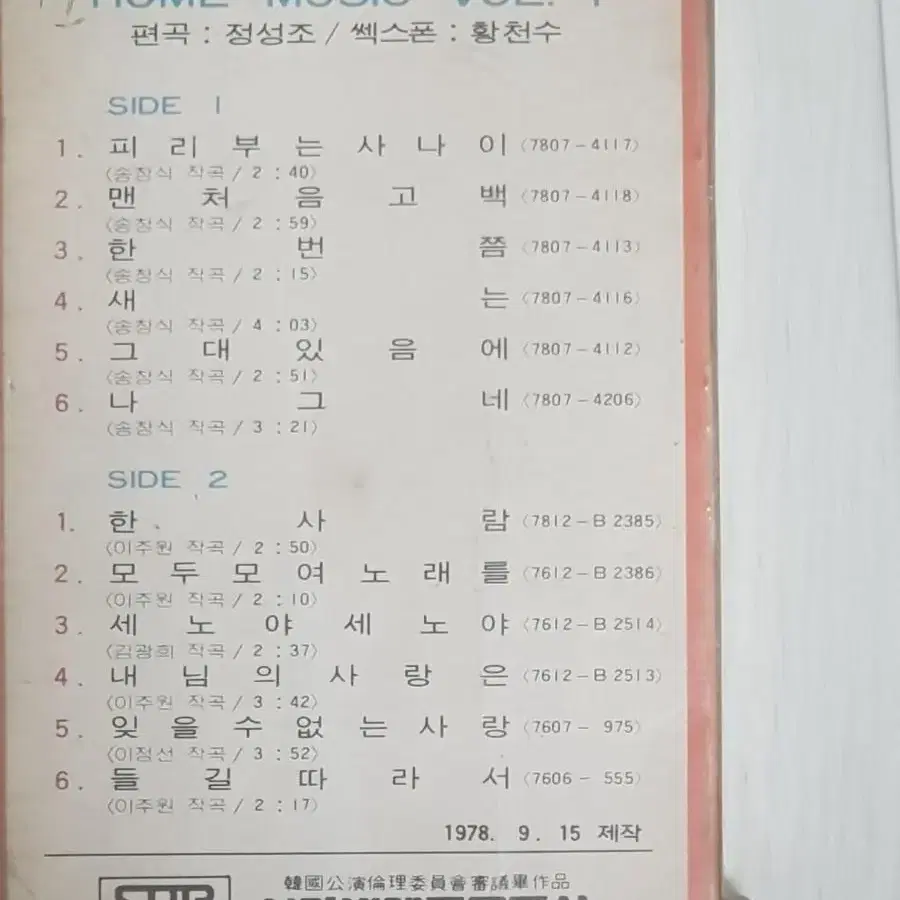 HOME MUSIC VOL. 1
편곡 : 정성조 / 쎅스폰 : 황천수
SIDE 1
1. 피리부는사나이 (7807-4117)
(송창식 작곡 / 2 : 40)
2. 맨처음고백 (7807-4118)
(송창식 작곡 / 2 : 59)
3. 한번쯤 (7807-4113)
(송창식 작곡 / 2 : 15)
4. 새는 (7807-4116)
(송창식 작곡 / 4 : 03)
5. 그대있음에 (7807-4112)
(송창식 작곡 / 2 : 51)
6. 나그네 (7807-4206)
(송창식 작곡 / 3 : 21)
SIDE 2
1. 한사람 (7812-B 2385)
(이주원 작곡 / 2 : 50)
2. 모두모여노래를 (7612-B 2386)
(이주원 작곡 / 2 : 10)
3. 세노야세노야 (7612-B 2514)
(김광희 작곡 / 2 : 37)
4. 내님의사랑은 (7612-B 2513)
(이주원 작곡 / 3 : 42)
5. 잊을수없는사랑 (7607- 975)
(이정선 작곡 / 3 : 52)
6. 들길따라서 (7606- 555)
(이주원 작곡 / 2 : 17)
1978. 9. 15 제작
韓國公演倫理委員會審議畢作品